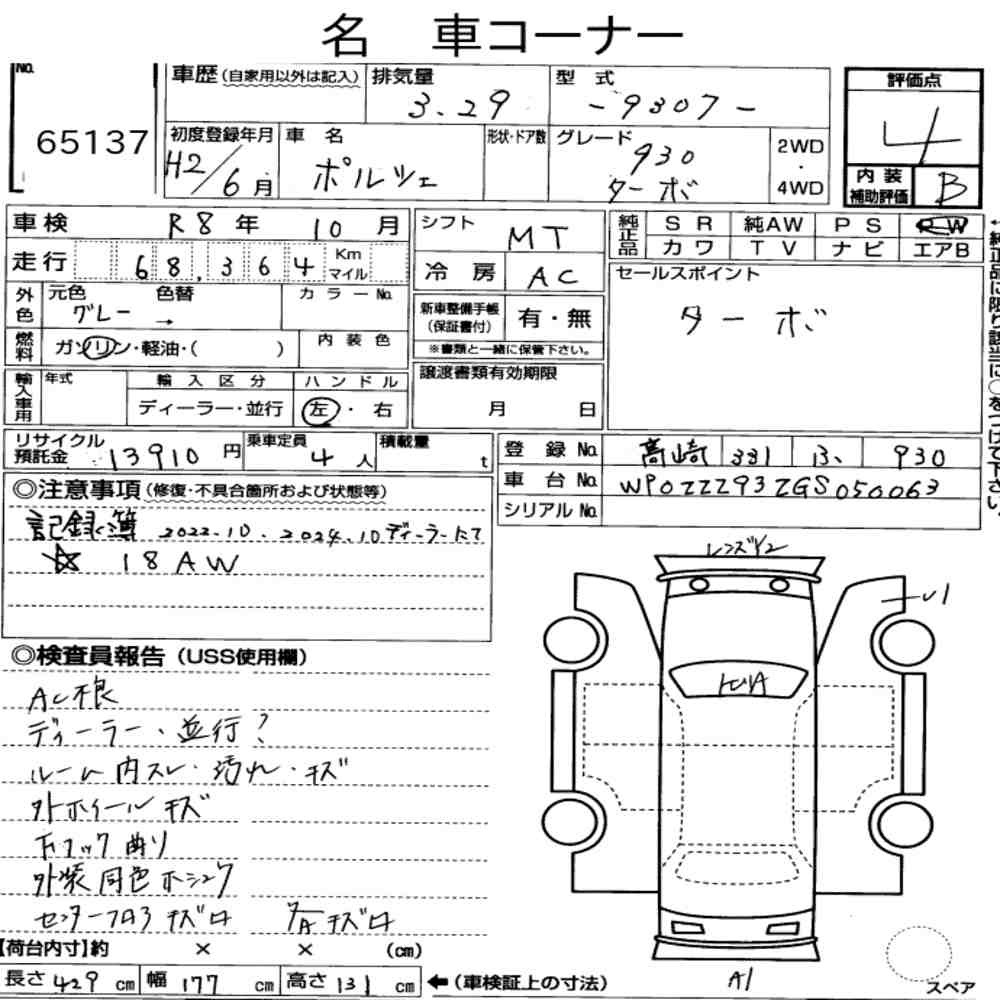 名 車コーナー
No.
65137
車歴(自家用以外は記入)
排気量
3.29
型 式
-9307-
評価点
4
初度登録年月
H2/6月
車 名
ポルシェ
形状・ドア数
グレード
930
ターボ
2WD
・
4WD
内 装
補助評価
B
車検 R8年 10月
走行 68,364 Km
マイル
外色
元色 色替 カラーNo.
グレー →
燃料
ガソリン・軽油・( )
内 装 色
輸入車用
年式
輸 入 区 分
ハ ン ド ル
ディーラー・並行
左・右
リサイクル
預託金
13910円
乗車定員
4人
積載量
t
シフト
MT
冷 房
AC
新車整備手帳
(保証書付)
有・無
※書類と一緒に保管下さい。
譲渡書類有効期限
月 日
純正品
SR 純AW PS RW
カワ TV ナビ エアB
セールスポイント
ターボ
登 録 No. 高崎 331 930
車 台 No. WP0ZZZ93ZGS050063
シリアルNo.
◎注意事項(修復・不具合箇所および状態等)
記録簿 2022.10、2024.10ディーラーにて
☆ 18AW
◎検査員報告(USS使用欄)
AC不良
ディーラー・並行?
ルーム内スレ・汚れ・キズ
外ホイールキズ
下フック曲り
外装同色ホシュウ
キズ
【荷台内寸】約 × × (cm)
長さ 429 cm 幅 177 cm 高さ 131 cm ←(車検証上の寸法)
A1
スペア